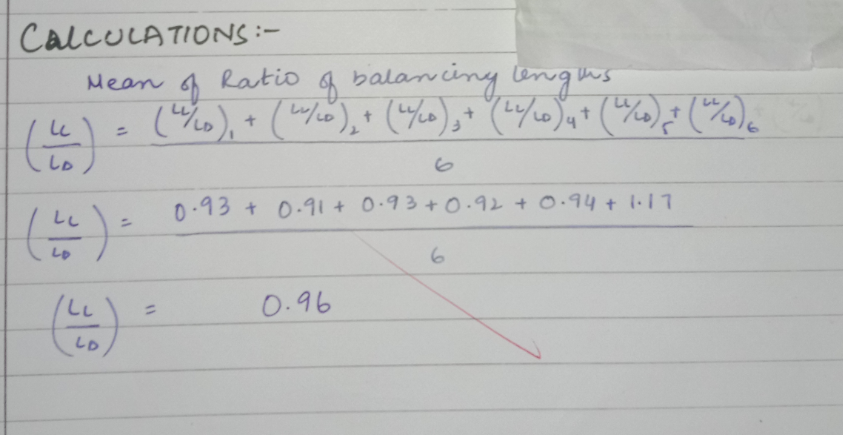 CALCULATIONS:-
Mean of Ratio of balancing lengths
(LL/LD) = (LL/LD)1 + (LL/LD)2 + (LL/LD)3 + (LL/LD)4 + (LL/LD)5 + (LL/LD)6
6
(LL/LD) = 0.93 + 0.91 + 0.93 + 0.92 + 0.94 + 1.17
6
(LL/LD) = 0.96